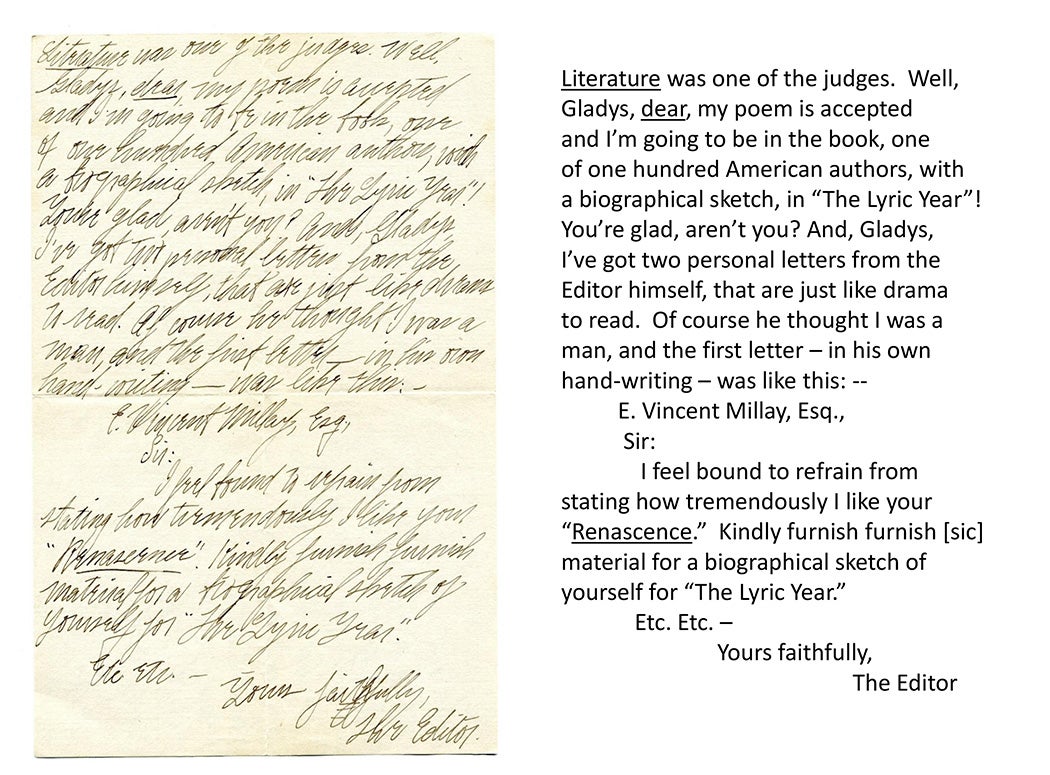 Literature was one of the judges. Well,
Gladys, dear, my poem is accepted
and I'm going to be in the book, one
of one hundred American authors, with
a biographical sketch, in "The Lyric Year"!
You're glad, aren't you? And, Gladys,
I've got two personal letters from the
Editor himself, that are just like drama
to read. Of course he thought I was a
man, and the first letter – in his own
hand-writing – was like this: –
E. Vincent Millay, Esq.,
Sir:
I feel bound to refrain from
stating how tremendously I like your
"Renascence". Kindly furnish furnish
material for a biographical sketch of
yourself for "The Lyric Year."
Etc. Etc. –
Yours faithfully,
The Editor.
Literature was one of the judges.  Well,
Gladys, dear, my poem is accepted
and I’m going to be in the book, one
of one hundred American authors, with
a biographical sketch, in “The Lyric Year”!
You’re glad, aren’t you? And, Gladys,
I’ve got two personal letters from the
Editor himself, that are just like drama
to read.  Of course he thought I was a
man, and the first letter – in his own
hand-writing – was like this: --
E. Vincent Millay, Esq.,
Sir:
I feel bound to refrain from
stating how tremendously I like your
“Renascence.”  Kindly furnish furnish [sic]
material for a biographical sketch of
yourself for “The Lyric Year.”
Etc. Etc. –
Yours faithfully,
The Editor